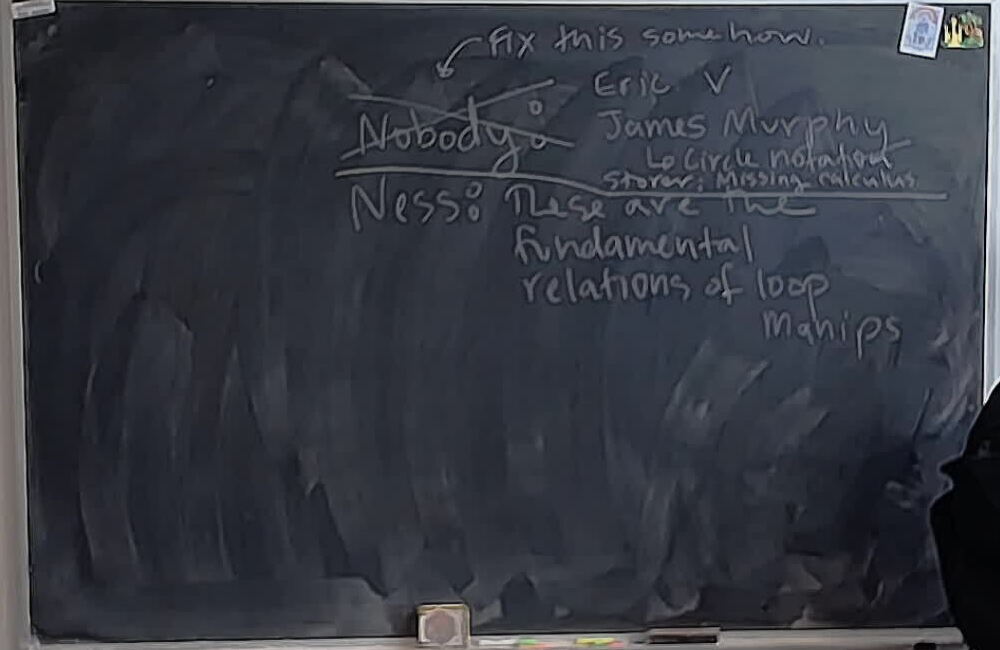 Fix this somehow.
Eric V
Nobody:
James Murphy
↳ Circle notation
Storer: Missing calculus
Ness: These are the
fundamental
relations of loop
Manips